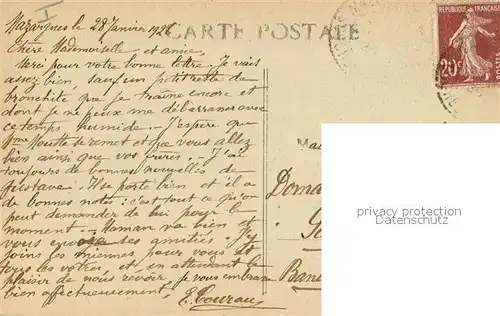 Mazargues le 28 Janvier 1926
CARTE POSTALE
Chère Mademoiselle et amie,
Merci pour votre bonne lettre. Je vais
assez bien, sauf un petit reste de
bronchite que je traîne encore et
dont je ne peux me débarrasser avec
ce temps humide. J'espère que
Mme se remet et que vous allez
bien ainsi que vos frères. J'ai
toujours de bonnes nouvelles de
Gustave. Il se porte bien et il a
de bonnes notes: c'est tout ce qu'on
peut demander de lui pour le
moment. Maman va bien et
vous envoie ses amitiés. J'y
joins les miennes pour vous et
tous les vôtres, et, en attendant le
plaisir de nous revoir, je vous embrasse
bien affectueusement,
REPUBLIQUE FRANÇAISE
20c
POSTES
privacy protection
Datenschutz